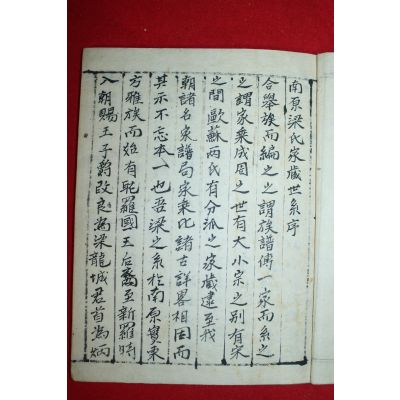 南原梁氏家藏世系序
合舉族而編之之謂族譜傳一家而系之
之謂家乘成周之世有大小宗之別有宋
之間歐蘇兩氏有分派之家藏逮至我
朝諸名家譜局家乘比諸古詳畧相因而
其示不忘本一也吾梁之系於南原實東
方雅族而始有耽羅國王后裔至新羅時
入朝賜王子爵改良爲梁龍城君首爲炳